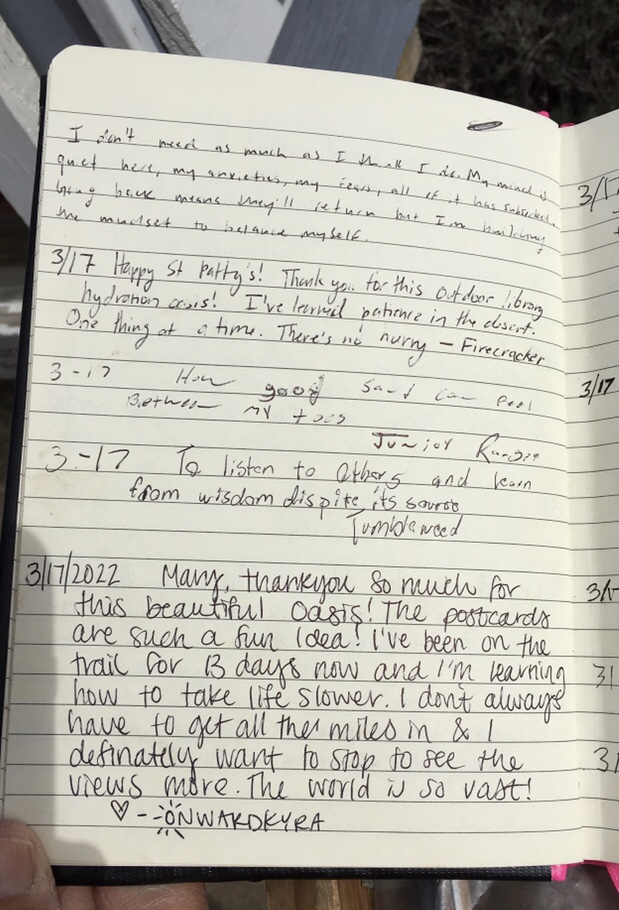 I don't need as much as I think I do. My mind is
quiet here, my anxieties, my fears, all of it has subsided.
Going back means they'll return but I'm building
the mindset to balance myself.
3/17 Happy St Patty's! Thank you for this outdoor library
hydration oasis! I've learned patience in the desert.
One thing at a time. There's no hurry – Firecracker
3-17 How good sand can feel
Between my toes
Junior Ranger
3-17 To listen to others and learn
from wisdom dispite its source
Tumbleweed
3/17/2022 Many, thankyou so much for
this beautiful Oasis! The postcards
are such a fun idea! I've been on the
trail for 13 days now and I'm learning
how to take life slower. I don't always
have to get all the miles in & I
definately want to stop to see the
views more. The world is so vast!
♡ - ONWARDKYRA
3/17
3/17